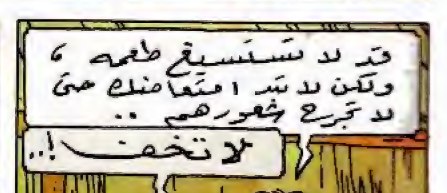 قد لا تستسيغ طعمه ،
ولكن لا تبد امتعاضك حتى
لا تجرح شعورهم ..
لا تخف !..